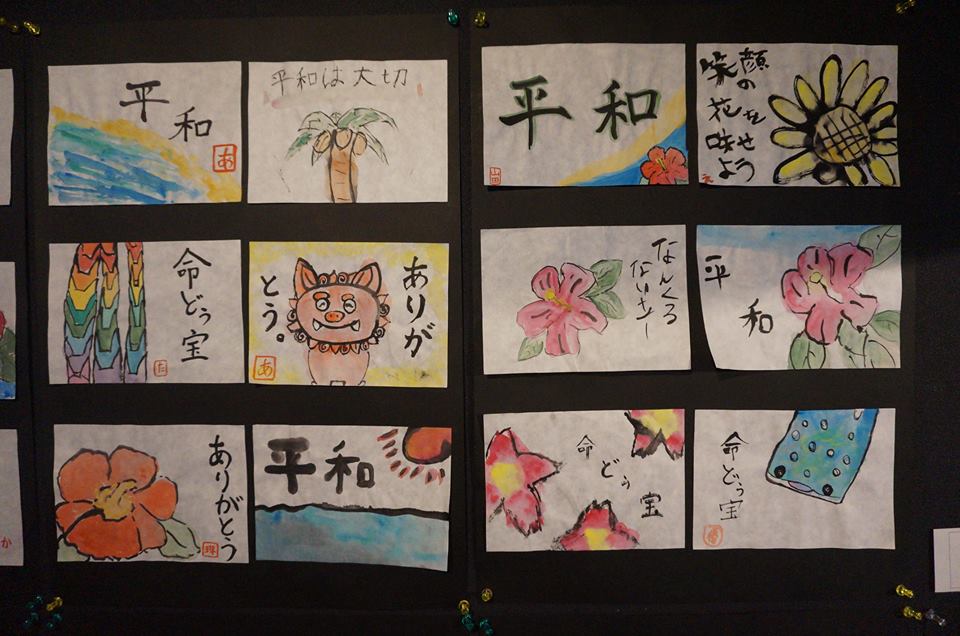 平
和
あ
平和は大切
平和
山田
笑顔の
花を
咲せ
よう
え
命どぅ宝
た
ありが
とう。
あ
なんくる
ないさー
平
和
ありがとう
平和
命
どぅ
宝
命どぅ宝
か